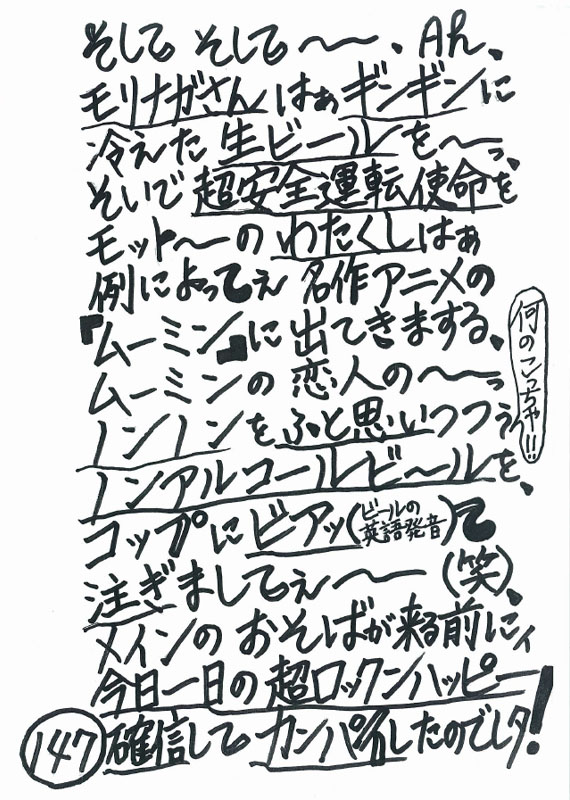 そして そして〜〜、Ah、
モリナガさんはぁギンギンに
冷えた生ビールを〜〜っ、
そいで超安全運転使命を
モット〜のわたくしはぁ
例によってぇ名作アニメの
『ムーミン』に出てきまする、
ムーミンの恋人の〜〜っ
ノンノンをふと思いつつぅ
何のこっちゃ!!
ノンアルコールビ〜ルを、
コップにビアッ(ビールの英語発音)て
注ぎましてぇ〜〜(笑)、
メインのおそばが来る前にィ
今日一日の超ロックンハッピー
確信してカンパイしたのでしタ!
147